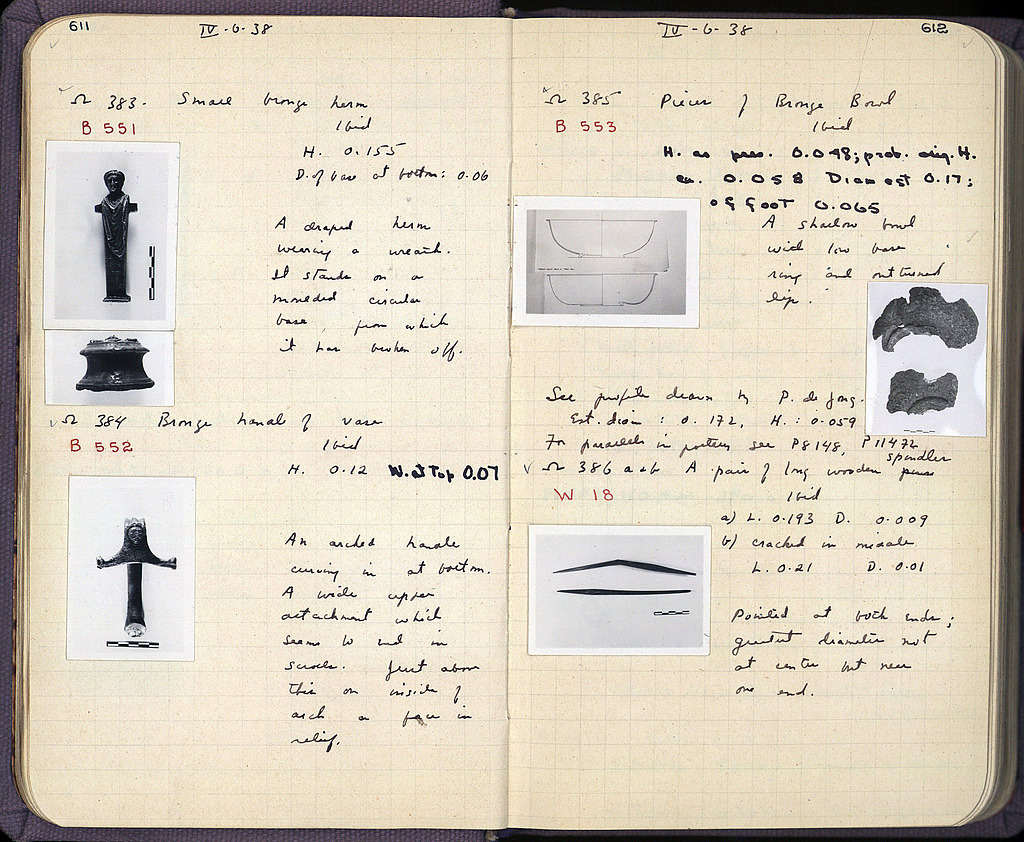 611
IV-6-38
Ω 383. Small bronze herm
B 551
Ibid
H. 0.155
D. of base at bottom: 0.06
A draped herm
wearing a wreath.
It stands on a
moulded circular
base, from which
it has broken off.
Ω 384 Bronze handle of vase
B 552
Ibid
H. 0.12 W. at Top 0.07
An arched handle
curving in at bottom.
A wide upper
attachment which
seems to end in
scrolls. Just above
this on inside of
arch a face in
relief.
612
IV-6-38
Ω 385 Pieces of Bronze Bowl
B 553
Ibid
H. as pres. 0.048; prob. orig. H.
ca. 0.058 Diam est 0.17;
of foot 0.065
A shallow bowl
with low base
ring and outturned
lip.
See profile drawn by P. de Jong.
Est. diam: 0.172, H.: 0.059
For parallels in pottery see P8148, P11472
spindles
Ω 386 a+b A pair of long wooden pins
W 18
Ibid
a) L. 0.193 D. 0.009
b) cracked in middle
L. 0.21 D. 0.01
Pointed at both ends;
greatest diameter not
at centre but near
one end.